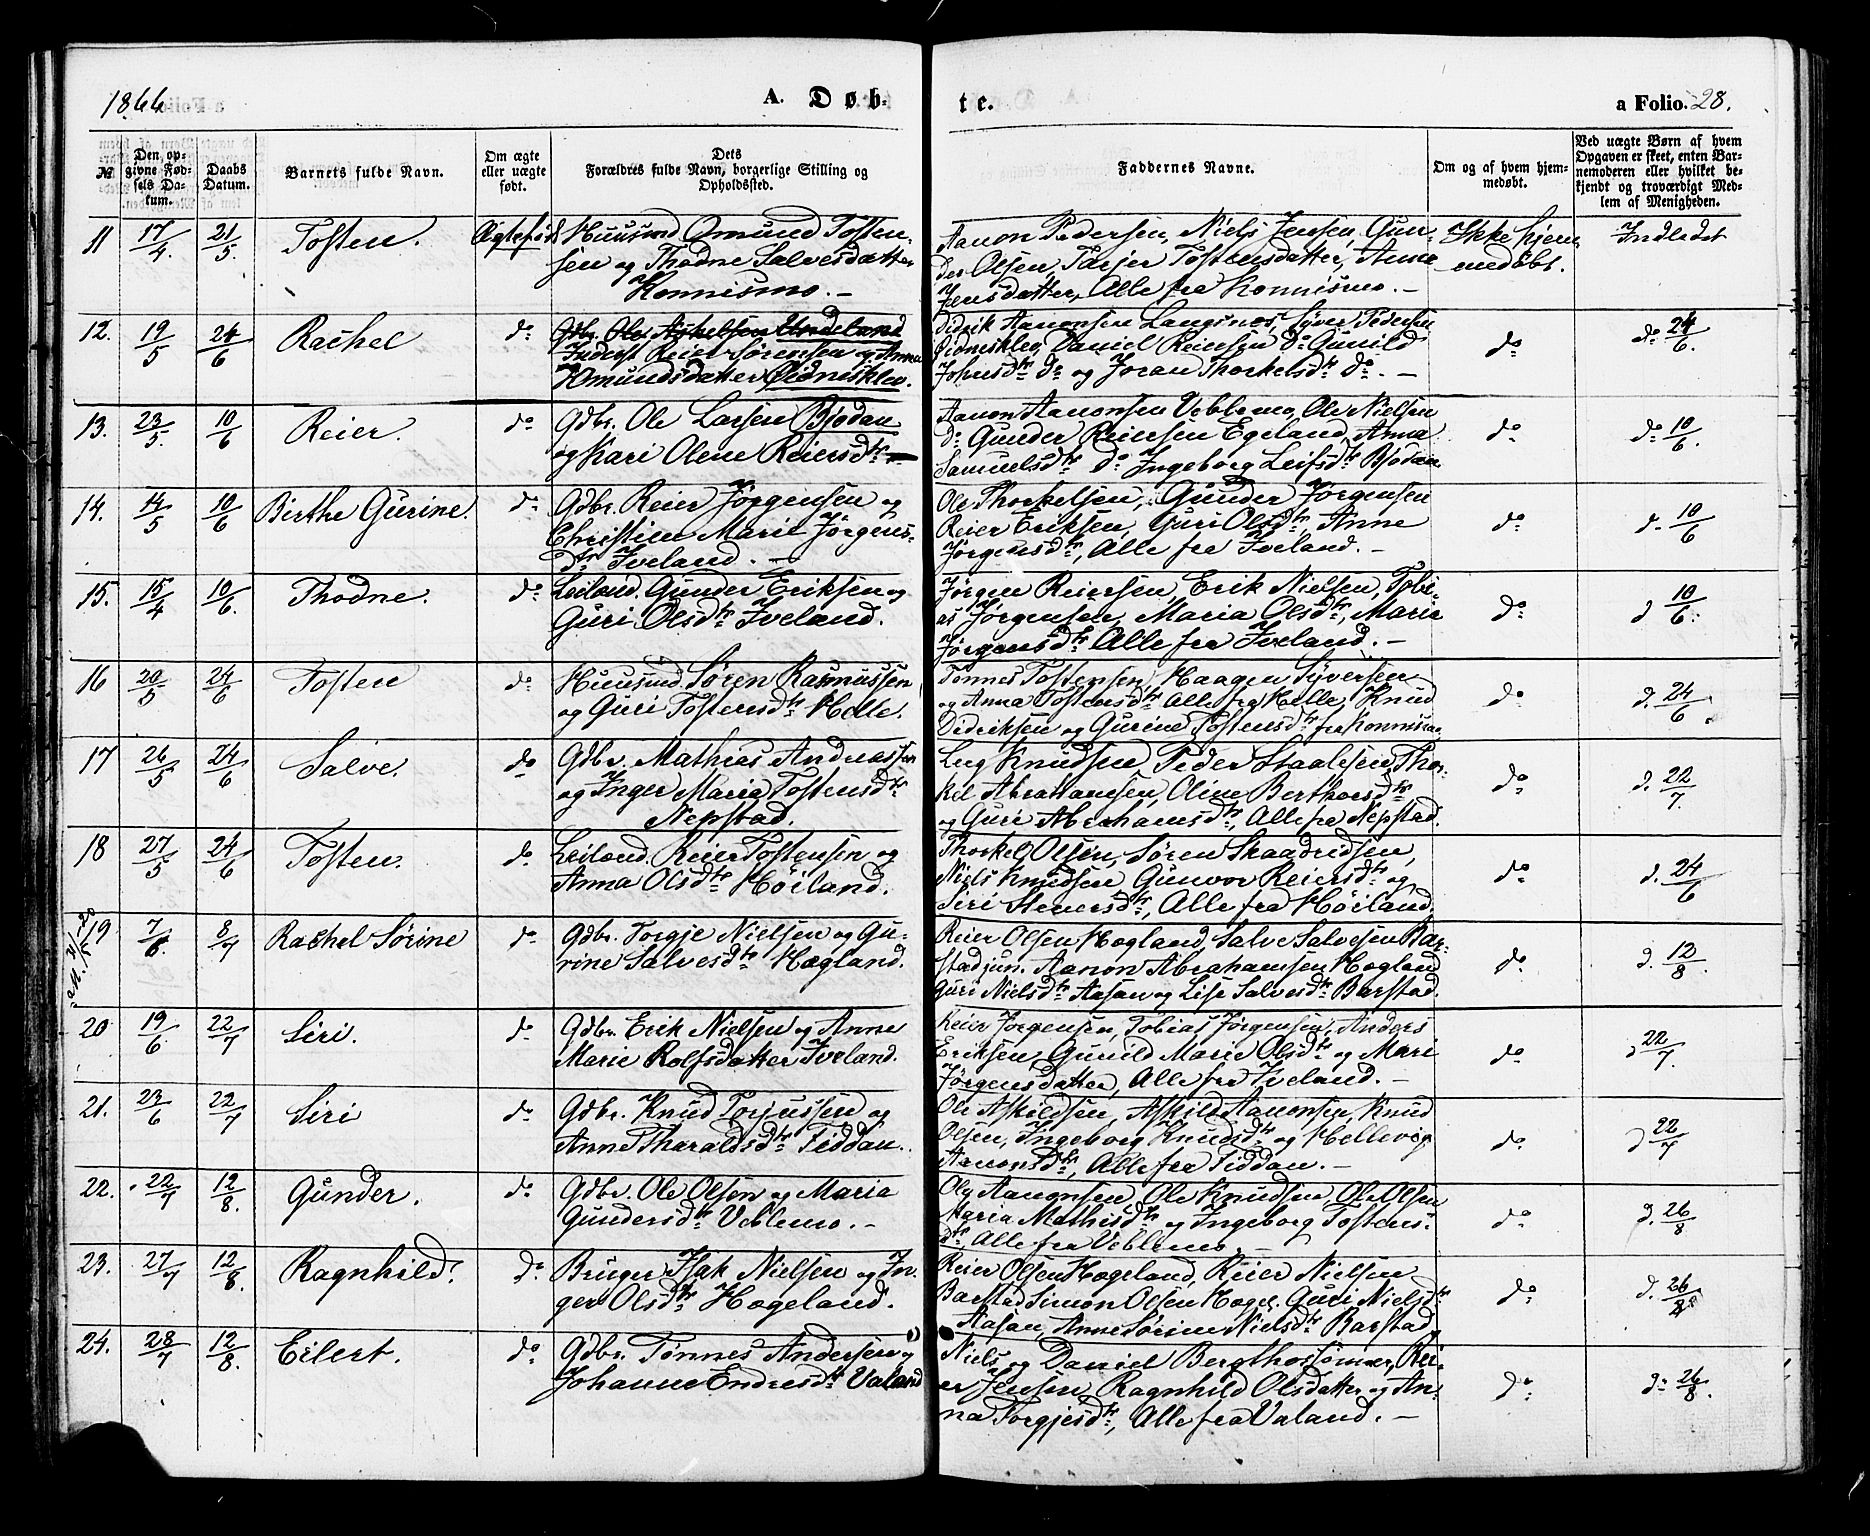 1866
A. Døb-
te.
a Folio 28.
№
Den op-
givne Fød-
sels Da-
tum.
Daabs
Datum.
Barnets fulde Navn.
Om ægte
eller uægte
født.
Dets
Forældres fulde Navn, borgerlige Stilling og
Opholdssted.
Faddernes Navne.
Om og af hvem hjem-
medøbt.
Ved uægte Børn af hvem
Opgaven er skeet, enten Bar-
nemoderen eller hvilket be-
kjendt og troværdigt Med-
lem af Menigheden.
11 17/4. 21/5. Tosten. Ægtefød. Huusmd Omund Tosten-
sen og Thodne Salvesdatter
Konnismo. —
Aanon Pedersen, Niels Jensen, Gun-
der Olsen, Tarjer Tostensdatter, Anne
Jensdatter, Alle fra Konnismo. —
Ikke hjem-
medøbt.
Indledet
12. 19/5 24/6 Rachel do Gdbr. Ole Askelsen Undeland
Inderst Reier Sørensen og Anna
Omundsdatter Øidnisklev.
Didrik Aanonsen Langsnes, Syver Pedersen
Øidnisklev, Daniel Reiersen do Gunild
Johnsdtr do og Joran Thorkelsdtr do. —
do
do 24/6.
13. 23/5 10/6 Reier. do Gdbr. Ole Larsen Bjodan
og Kari Olene Reiersdtr
Aanon Aanonsen Veblemo, Ole Nielsen
do Gunder Reiersen Egeland, Anna
Samuelsdtr do Ingeborg Leifsdtr Bjodan
do
do 10/6.
14. 14/5 10/6 Birthe Gurine. do Gdbr. Reier Jörgensen og
Christine Marie Jörgens-
dtr Iveland. —
Ole Thorkelsen, Gunder Jörgensen
Reier Eriksen, Guri Olsdtr, Anne
Jörgensdtr, Alle fra Iveland. —
do
d. 10/6
15. 15/4 10/6. Thodne. do Leilænd. Gunder Eriksen og
Guri Olsdtr Iveland.
Jörgen Reiersen, Erik Nielsen, Tobi-
as Jörgensen, Maria Olsdtr, Marie
Jörgensdtr Alle fra Iveland. —
do
d 10/6.
16 20/5 24/6 Tosten do Huusmd. Søren Rasmussen
og Guri Tostensdtr Helle.
Tønnes Tostensen, Haagen Syversen
og Anna Tostensdtr Alle fra Helle, Knud
Didriksen og Gurine Tostensdtr fra Konnismo
do
d. 24/6
17 26/5 24/6 Salve. do Gdbr. Mathias Andreassen
og Inger Maria Tostensdtr
Nepstad.
Knudsen Peder Staalesen, Thor-
kel Abrahamsen, Oline Berthorsdtr
og Guri Abrahamsdtr, Alle fra Nepstad.
do
d. 22/7.
18 27/5 24/6 Tosten. do Leilænd. Reier Tostensen og
Anna Olsdtr Höiland.
Thorkel Olsen, Søren Skaadridsen,
Niels Knudsen Gunvor Reiersdtr og
Siri Stenersdtr, Alle fra Höiland.
do
d. 24/6
19 7/6. 8/7 Rachel Sörine do Gdbr. Torgje Nielsen og Gu-
rine Salvesdtr Hægland.
Reier Olsen Hægland, Salve Salvesen Bar-
stad jun. Aanon Abrahamsen Hægland
Guri Nielsdtr Aasan og Lise Salvesdtr Barstad.
do
d. 12/8.
20 19/6. 22/7 Siri. do Gdbr. Erik Nielsen og Anne
Marie Rolfsdatter Iveland.
Reier Jörgensen, Tobias Jörgensen, Anders
Eriksen, Gunild Marie Olsdtr og Mari
Jörgensdatter, Alle fra Iveland. —
do
d 22/7.
21. 23/6 22/7 Siri do Gdbr. Knud Torjussen og
Anne Tharaldsdtr Fiddan.
Ole Askildsen, Askild Aanonsen, Knud
Olsen, Ingeborg Knudsdtr og Hellevig
Aanonsdtr, Alle fra Fiddan. —
do
d 22/7
22. 22/7 12/8. Gunder. do Gdbr. Ole Olsen og Maria
Gundersdtr Veblemo. —
Ole Aanonsen, Ole Knudsen, Ole Olsen
Maria Mathisdtr og Ingeborg Tostens-
dtr Alle fra Veblemo. —
do
d. 26/8
23. 27/7 12/8. Ragnhild. do Bruger Isak Nielsen og In-
ger Olsdtr Hægeland.
Reier Olsen Hægeland, Reier Nielsen
Barstad Simon Olsen Hægel. Guri Nielsdtr
Aasan, Anne Sörine Nielsdtr Barstad
do
d. 26/8
24. 28/7 12/8. Eilert. do Gdbr. Tønnes Andersen og
Johanne Endresdtr Valand
Niels og Daniel Bergthorsønner, Rei-
er Jensen, Ragnhild Olsdatter og An-
na Torgjesdtr, Alle fra Valand. —
do
do 26/8.